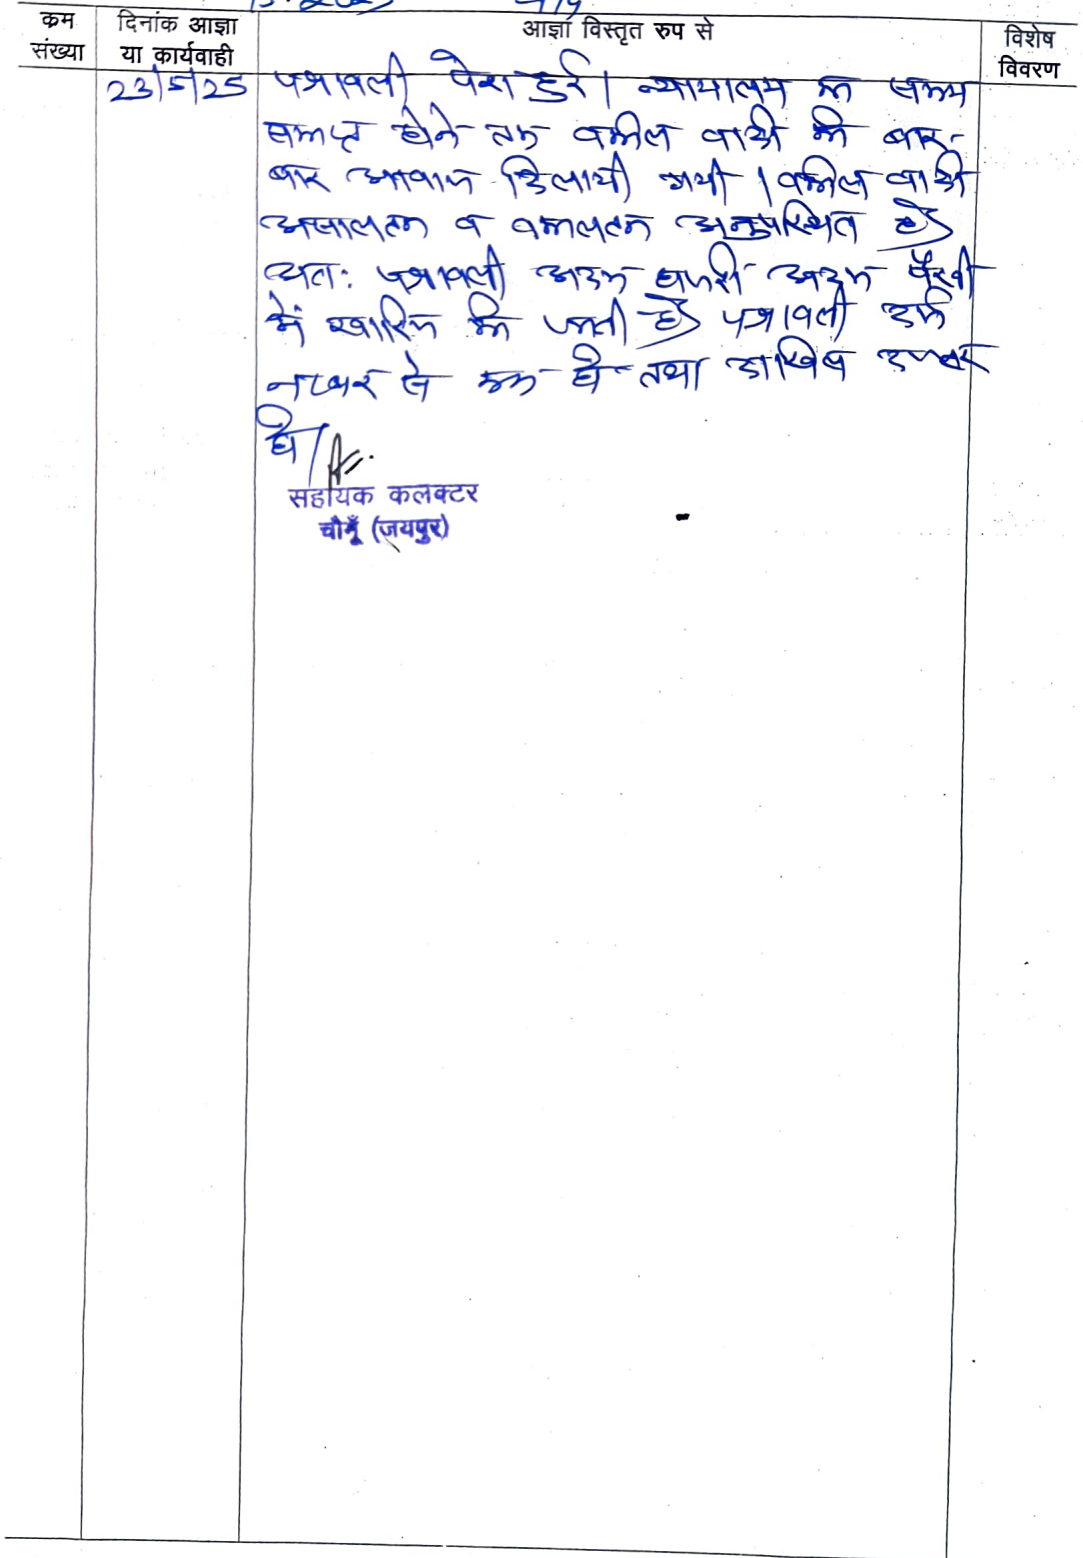 क्रम
संख्या
दिनांक आज्ञा
या कार्यवाही
आज्ञा विस्तृत रुप से
विशेष
विवरण
23/5/25
पत्रावली पेश हुई। न्यायालय का समय
समाप्त होने तक वकील वादी को बार-
बार आवाज दिलायी गयी। वकील वादी
असालतन व वकालतन अनुपस्थित है
अतः पत्रावली अदम हाजरी अदम पैरवी
में खारिज की जाती है पत्रावली दर्ज
नम्बर से कम हो तथा दाखिल दफ्तर
हो।
सहायक कलक्टर
चौमूँ (जयपुर)